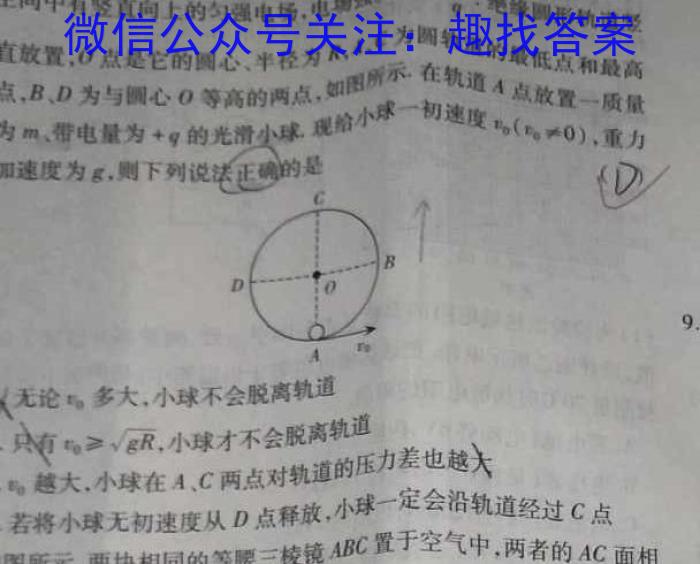 空间中有竖直向上的匀强电场,电场强
q 绝缘圆形轨道竖
微信公众号关注：趣找答案
直放置,O点是它的圆心、半径为R,A、C为圆轨道的最低点和最高
点,B、D为与圆心O等高的两点,如图所示.在轨道A点放置一质量
为m、带电量为+q的光滑小球.现给小球一初速度v₀(v₀≠0),重力
加速度为g,则下列说法正确的是
(D)
C
D
O
B
A
v₀
9.
无论v₀多大,小球不会脱离轨道
.只有v₀≥√gR,小球才不会脱离轨道
v₀越大,小球在A、C两点对轨道的压力差也越大
.若将小球无初速度从D点释放,小球一定会沿轨道经过C点
如图所示,两块相同的等腰三棱镜ABC置于空气中,两者的AC面相